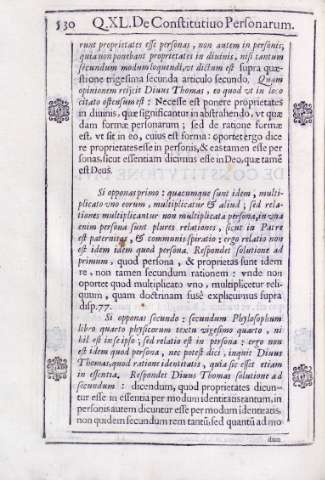 530 Q.XL.De Constitutiuo Personarum.
runt proprietates esse personas, non autem in personis,
quia non ponebant proprietates in diuinis, nisi tantum
secundum modum loquendi, vt dictum est supra quæ-
stione trigesima secunda articulo secundo. Quam
opinionem reijcit Diuus Thomas, eo quod vt in loco
citato ostensum est: Necesse est ponere proprietates
in diuinis, quæ significantur in abstracto, vt quæ
dam formæ personarum; sed de ratione formæ
est, vt sit in eo, cuius est forma: oportet ergo dice
re proprietates esse in personis, & eas tamen esse per
sonas, sicut essentiam dicimus esse in Deo, quæ tamẽ
est Deus.
Si opponas primo: quæcumque sunt idem, multi-
plicato vno eorum, multiplicatur & aliud; sed rela-
tiones multiplicantur non multiplicata persona, in vna
enim persona sunt plures relationes, sicut in Patre
est paternitas, & communis spiratio: ergo relatio non
est idem quod persona. Respondet solutione ad
primum, quod persona, & proprietas sunt idem
re, non tamen secundum rationem: vnde non
oportet quod multiplicato vno, multiplicetur reli-
quum, quam doctrinam fusè explicuimus supra
disp.77.
Si opponas secundo: secundum Phylosophum
libro quarto physicorum textu vigesimo quarto, ni
hil est in se ipso; sed relatio est in persona: ergo non
est idem quod persona, nec potest dici, inquit Diuus
Thomas, quod ratione identitatis, quia sic esset etiam
in essentia. Respondet Diuus Thomas solutione ad
secundum: dicendum, quod proprietates dicun-
tur esse in essentia per modum identitatis tantum, in
personis autem dicuntur esse per modum identitatis,
non quidem secundum rem tantũ, sed quantũ ad mo
dum